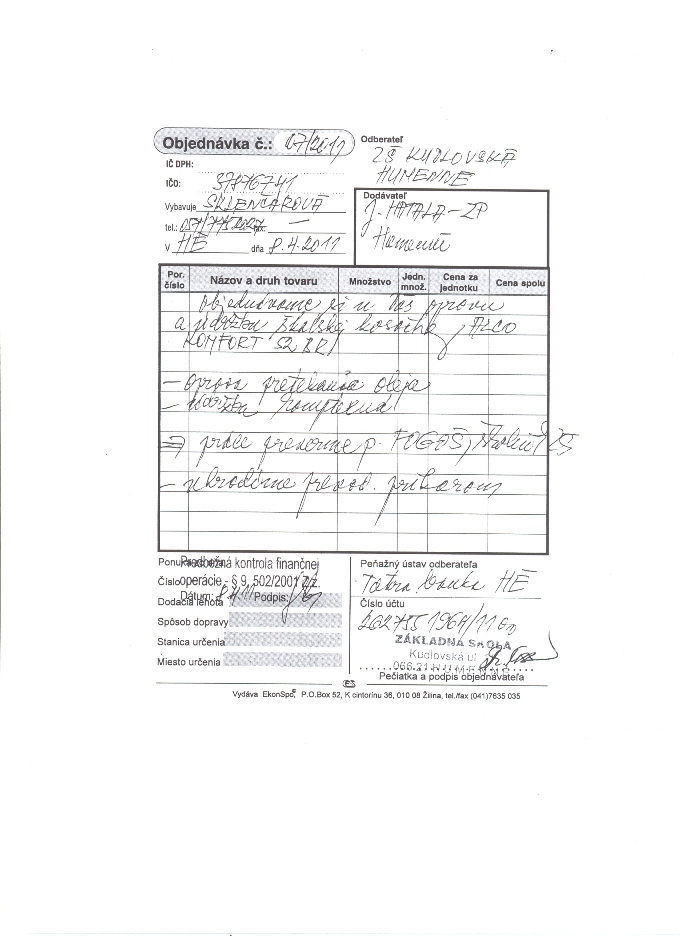 Objednávka č.: 07/2011
Odberateľ
ZŠ KUDLOVSKÁ
HUMENNÉ
IČ DPH:
IČO: 37876741
Vybavuje SKLENČÁROVÁ
tel.: fax: —
V HE dňa 8.4.2011
Dodávateľ
J. HATALA – ZP
Humenné
Por. číslo Názov a druh tovaru Množstvo Jedn. množ. Cena za jednotku Cena spolu
Objednávame si u Vás opravu
a údržbu školskej kosačky ALCO
KOMFORT 52 BR
– oprava pretekania oleja
– údržba komplexná
⇒ práce prevezme p. FOGAŠ, školník ZŠ
– uhradíme prevod. príkazom
Predbežná kontrola finančnej
Číslo operácie - § 9, 502/2001 Z.z.
Dátum: 8.4.11 Podpis:
Dodacia lehota
Spôsob dopravy
Stanica určenia
Miesto určenia
Peňažný ústav odberateľa
Tatra banka HE
Číslo účtu
/1100
ZÁKLADNÁ ŠKOLA
Kudlovská ul
066 21 HUMENNÉ
Pečiatka a podpis objednávateľa
Vydáva EkonSpol, P.O.Box 52, K cintorínu 36, 010 08 Žilina, tel./fax (041)7635 035